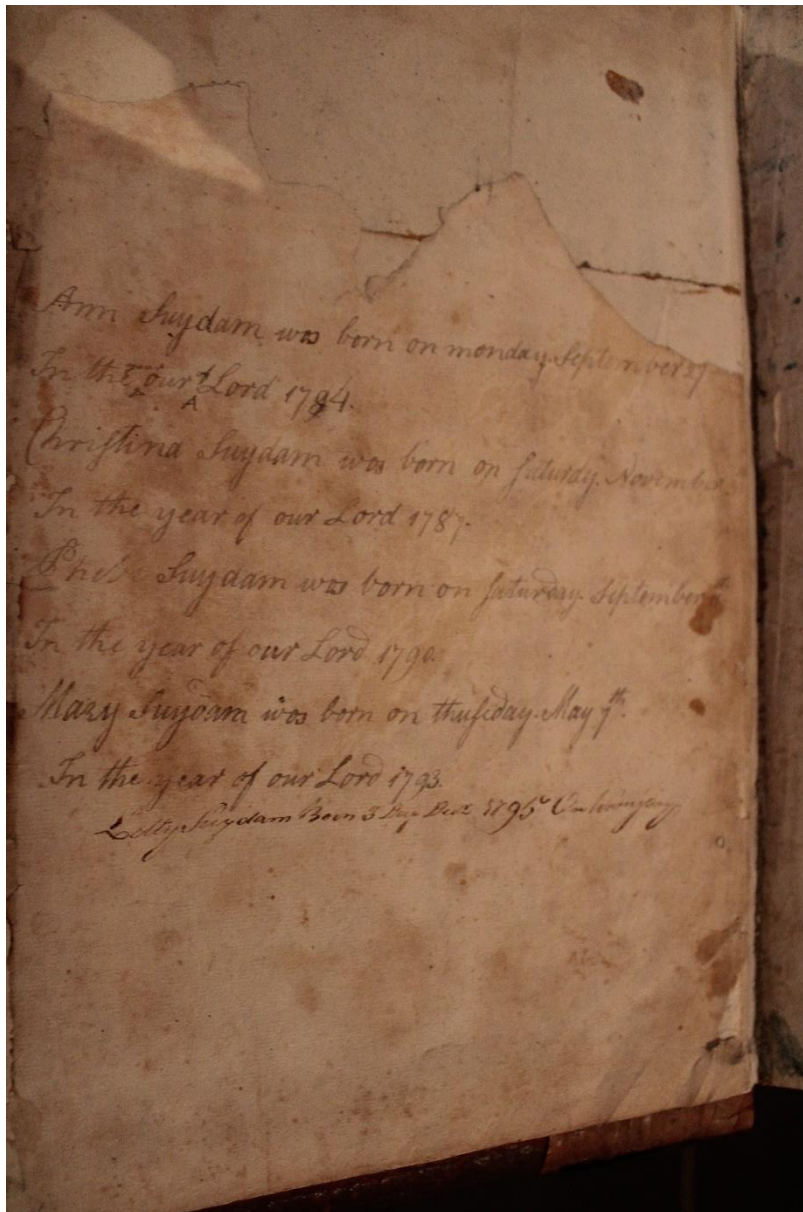 Ann Suydam was born on monday September 27
In the year of our Lord 1784.
Christina Suydam was born on saturdy November
In the year of our Lord 1787.
Phebe Suydam was born on saturday September
In the year of our Lord 1790
Mary Suydam was born on thusday May 9th.
In the year of our Lord 1793.
Letty Suydam Born 3 Day Dec 1795